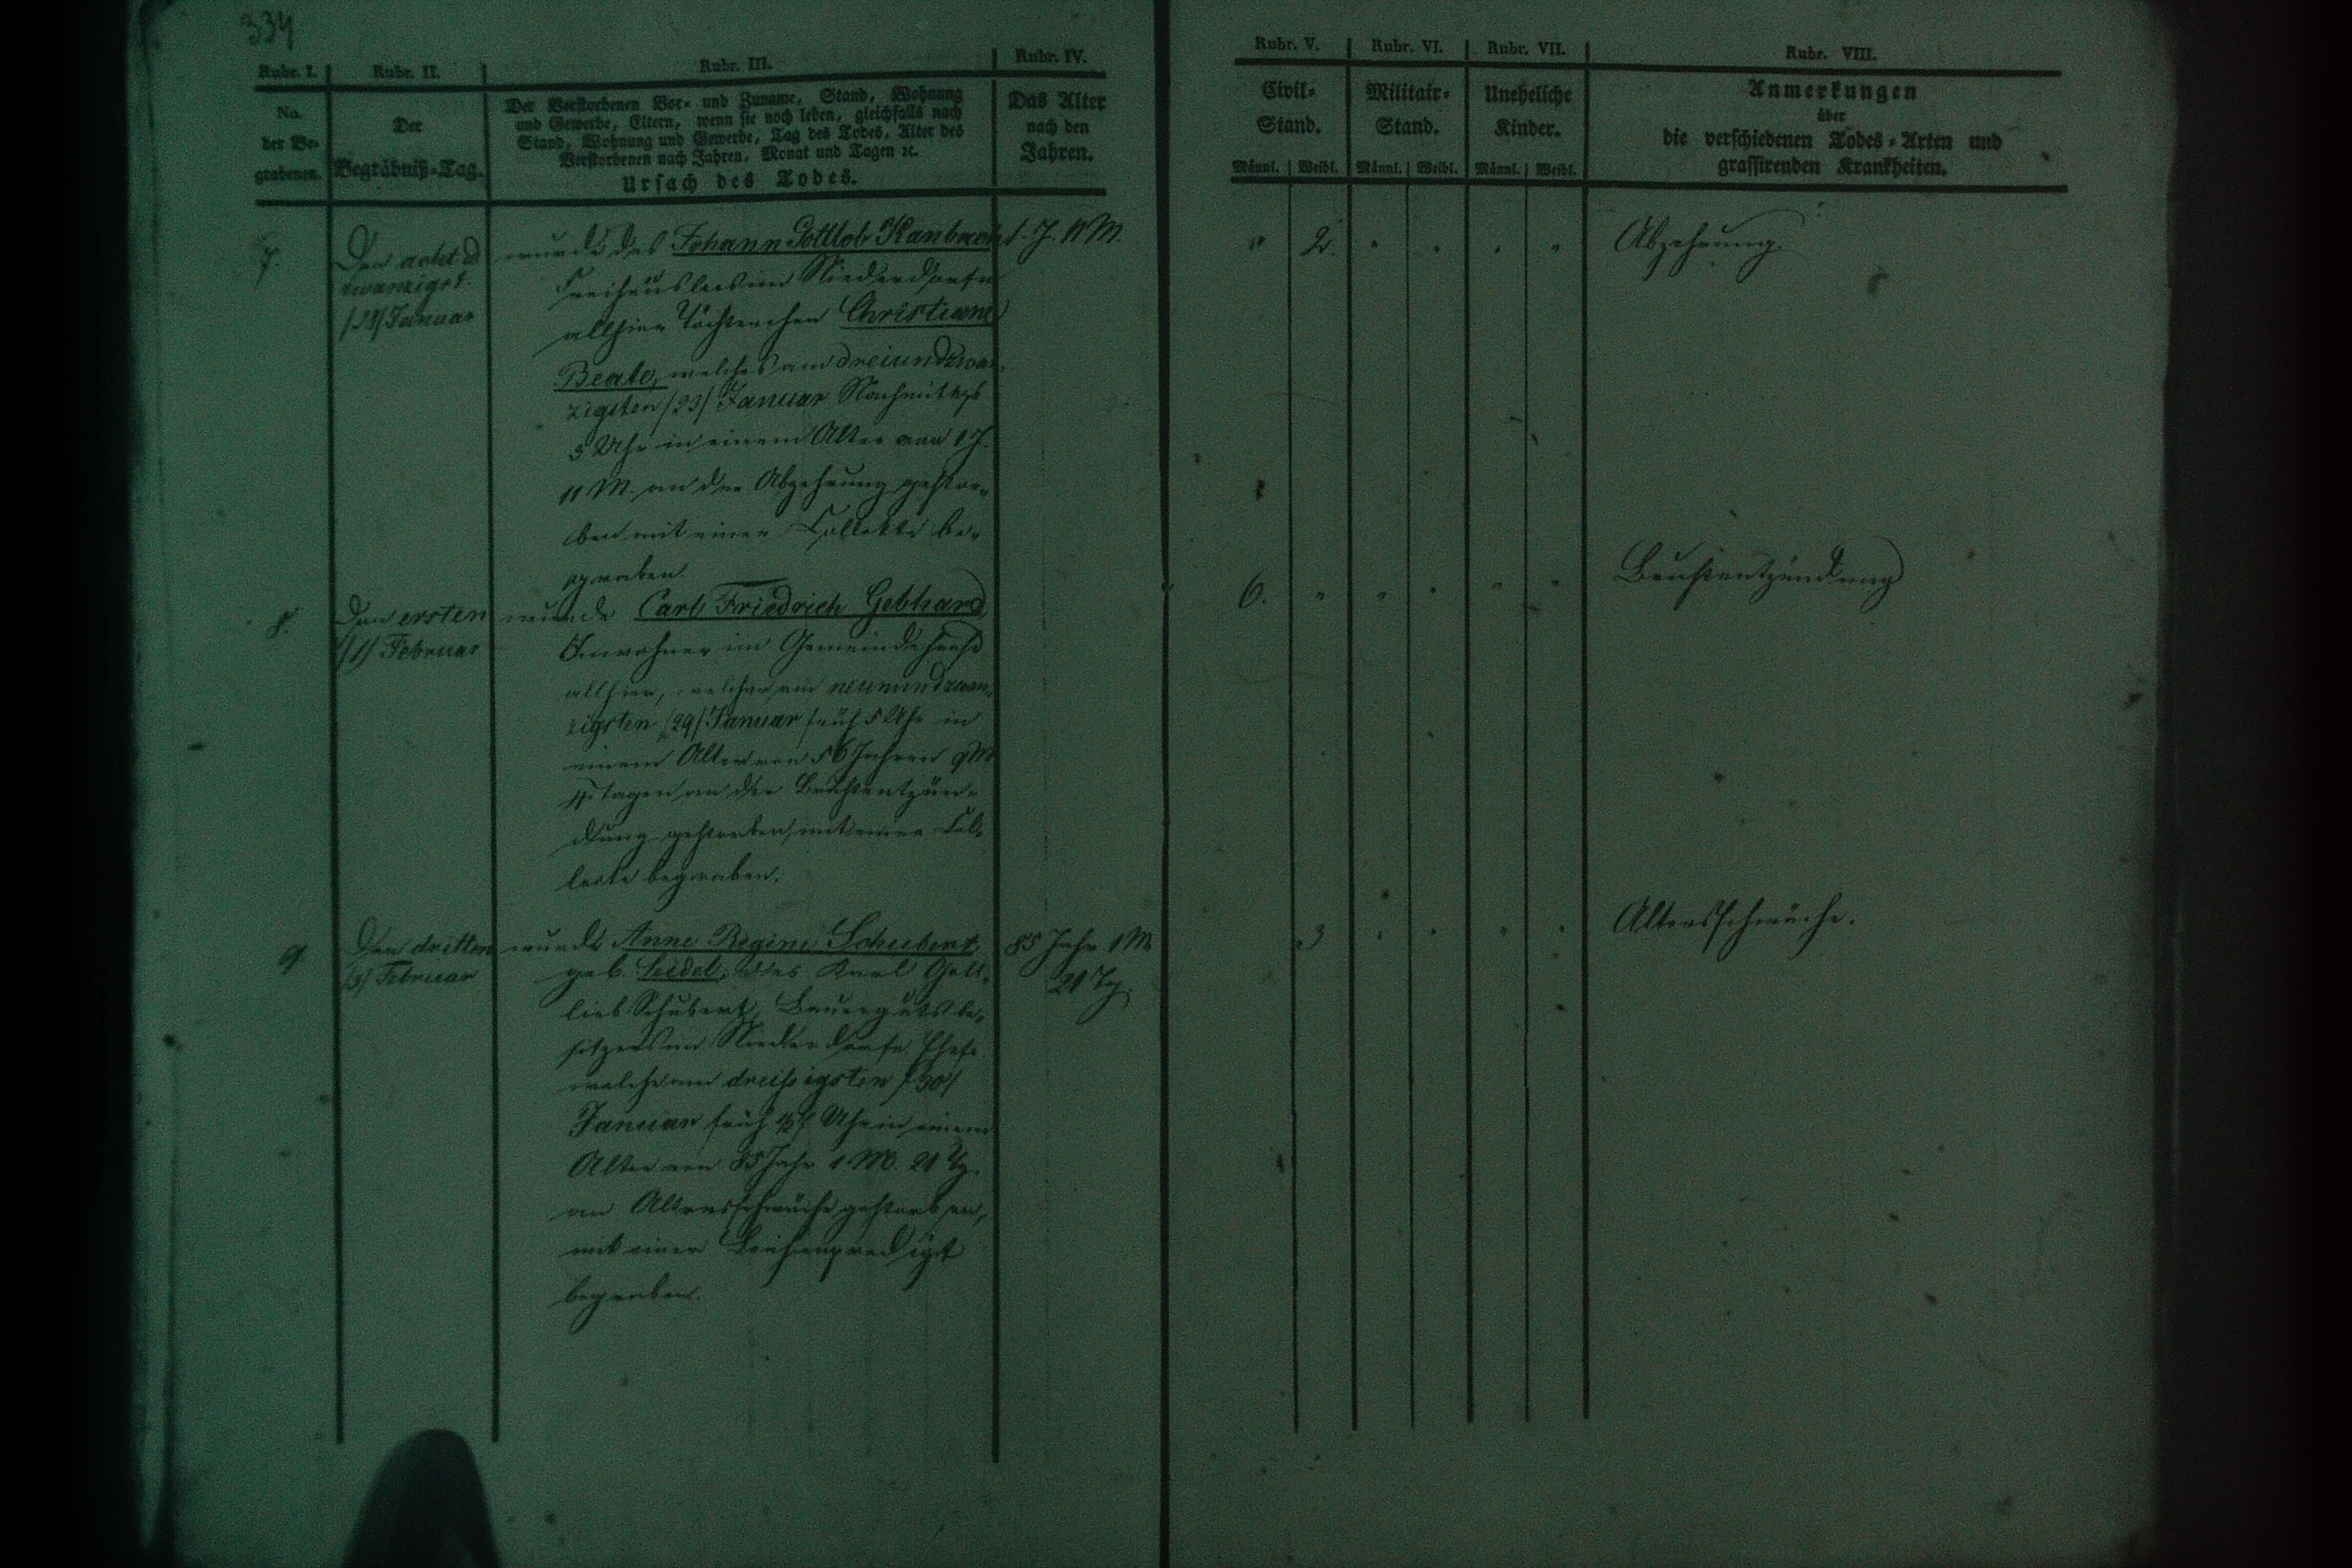 334
Rubr. I.
Rubr. II.
Rubr. III.
Rubr. IV.
No.
der Be-
grabenen.
Der
Begräbniß-Tag.
Der Verstorbenen Vor- und Zuname, Stand, Wohnung
und Gewerbe, Eltern, wenn sie noch leben, gleichfalls nach
Stand, Wohnung und Gewerbe, Tag des Todes, Alter des
Verstorbenen nach Jahren, Monat und Tagen ꝛc.
Ursach des Todes.
Das Alter
nach den
Jahren.
7.
Den acht u
zwanzigst.
/28/ Januar
wurde des Johann Gottlob Hanbach
Freihäuslers im Niederdorfe
allhier Töchterchen Christiane
Beate, welches am dreiundzwan-
zigsten /23/ Januar Nachmittgs
3 Uhr in einem Alter von 1 J.
11 M. an der Abzehrung gestor-
ben mit einer Collekte be-
graben.
1. J. 11 M.
8.
Den ersten
/1/ Februar
wurde Carl Friedrich Gebhard,
Inwohner im Gemeindehause
allhier, welcher am neunundzwan-
zigsten /29/ Januar früh 5 Uhr in
einem Alter von 56 Jahren 9 M
Tagen an der Brustentzün-
dung gestorben, mit einer Col-
lecte begraben.
9.
Den dritten
/3/ Februar
wurde Anne Regine Schubert
geb. Seidel, des Karl Gott-
lieb Schubert, Bauergutsbe-
sitzers im Niederdorfe Ehefr.
welche am dreißigsten /30/
Januar früh Uhr in einem
Alter von 85 Jahr 1 M. 21 Tg.
an Altersschwäche gestorben,
mit einer Leichenpredigt
begraben.
85 Jahr 1 M
21 Tg.
Rubr. V.
Rubr. VI.
Rubr. VII.
Rubr. VIII.
Civil-
Stand.
Militair-
Stand.
Uneheliche
Kinder.
Anmerkungen
über
die verschiedenen Todes-Arten und
grassirenden Krankheiten.
Männl. Weibl. Männl. Weibl. Männl. Weibl.
" 2. " " " " Abzehrung.
6. " " " " " Brustentzündung
3 " " " " Altersschwäche.